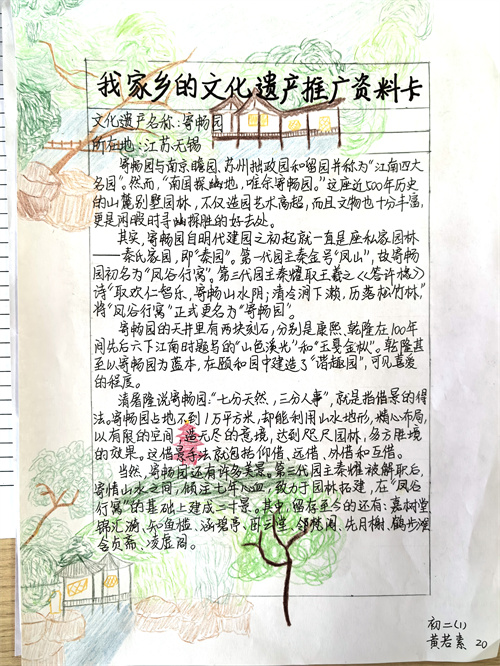 我家乡的文化遗产推广资料卡
文化遗产名称:寄畅园
所在地:江苏无锡
寄畅园与南京瞻园、苏州拙政园和留园并称为“江南四大
名园”。然而,“南国探幽地,唯余寄畅园。”这座近500年历史
的山麓别墅园林,不仅造园艺术高超,而且文物也十分丰富,
更是闲暇时寻幽探胜的好去处。
其实,寄畅园自明代建园之初起就一直是座私家园林
——秦氏家园,即“秦园”。第一代园主秦金号“凤山”,故寄畅
园初名为“凤谷行窝”。第三代园主秦耀取王羲之《答许椽》
诗“取欢仁智乐,寄畅山水阴;清泠涧下濑,历落松竹林,”
将“凤谷行窝”正式更名为“寄畅园”。
寄畅园的天井里有两块刻石,分别是康熙、乾隆在100年
间先后六下江南时题写的“山色溪光”和“玉戛金枞”。乾隆甚
至以寄畅园为蓝本,在颐和园中建造了“谐趣园”,可见喜爱
的程度。
清屠隆说寄畅园:“七分天然,三分人事”,就是指借景的得
法。寄畅园占地不到1万平方米,却能利用山水地形,精心布局,
以有限的空间 造无尽的意境,达到咫尺园林,多方胜境
的效果。这借景手法就包括仰借、远借、外借和互借。
当然,寄畅园还有许多美景。第三代园主秦耀被解职后,
寄情山水之间,倾注七年心血,致力于园林拓建,在“凤谷
行窝”的基础上建成二十景。其中,留存至今的还有:嘉树堂
锦汇漪、知鱼槛、涵碧亭、卧云堂、邻梵阁、先月榭、鹤步滩
含贞斋、凌虚阁。
初二(1)
黄若素 20